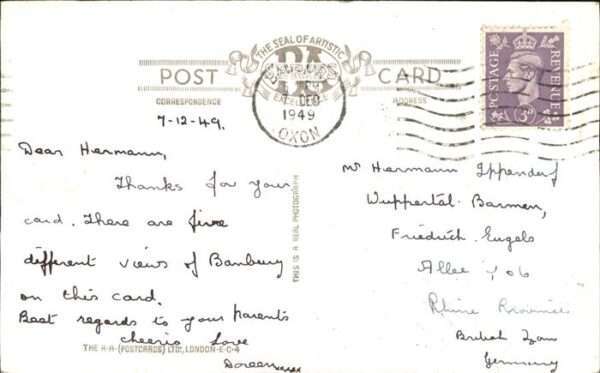 THE SEAL OF ARTISTIC
RA
POST CARD
EXCELLENCE
CORRESPONDENCE
ADDRESS
BANBURY
7 DEC
1949
OXON
POSTAGE
REVENUE
3D
7-12-49.
Dear Hermann,
Thanks for your
card. There are five
different views of Banbury
on this card.
Best regards to your parents
cheerio Love
Doreen xxxx
THIS IS A REAL PHOTOGRAPH
THE R.A. (POSTCARDS) LTD., LONDON-E-C-4
Mr Hermann Ippendorf
Wuppertal-Barmen,
Friedrich. Engels
Allee
Rhine Province
British Zone
Germany